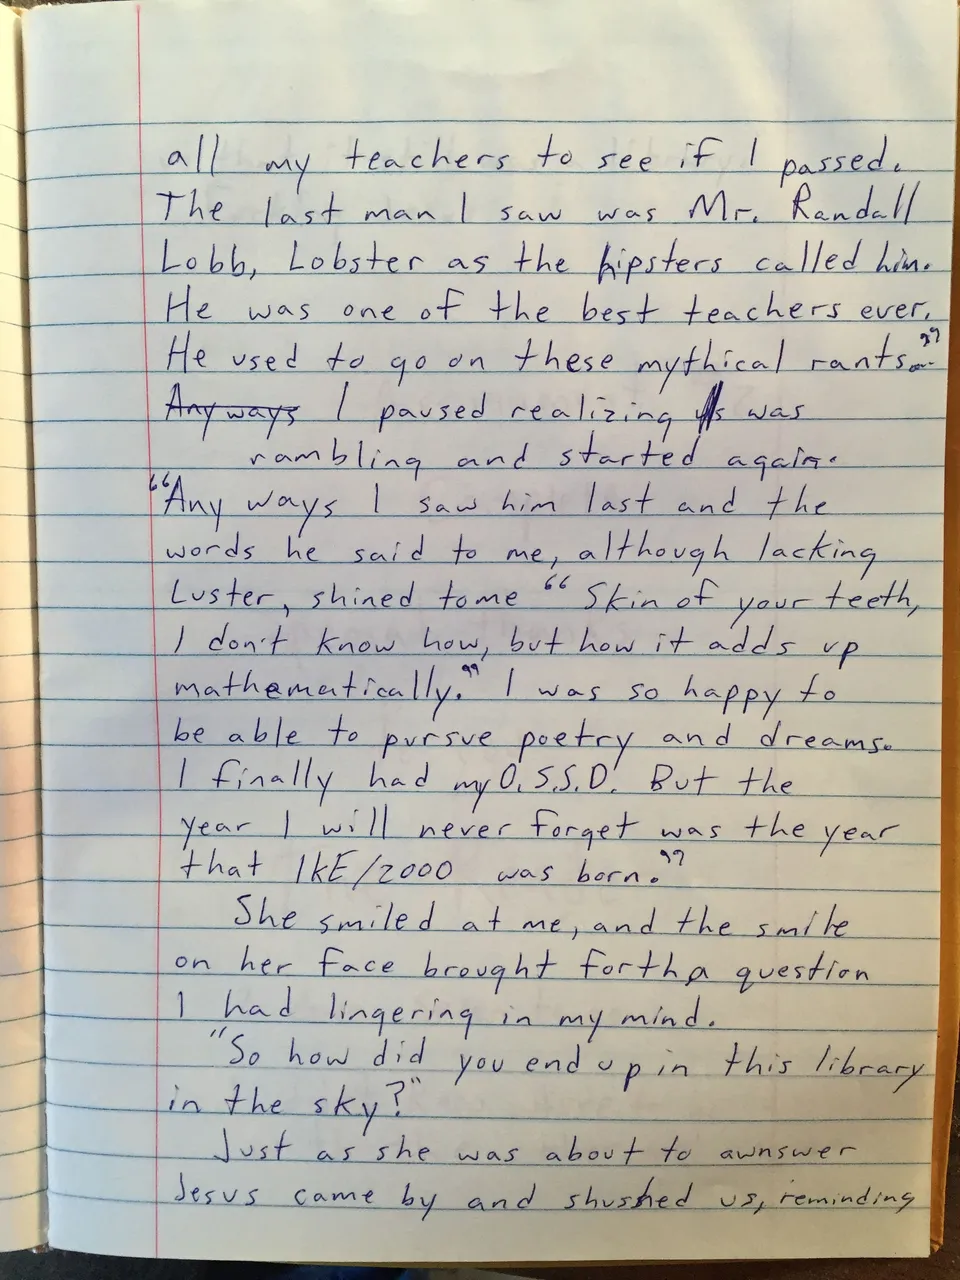 all my teachers to see if I passed.
The last man I saw was Mr. Randall
Lobb, Lobster as the hipsters called him.
He was one of the best teachers ever.
He used to go on these mythical rants..."
Any ways I paused realizing I was
rambling and started again.
"Any ways I saw him last and the
words he said to me, although lacking
Luster, shined to me "Skin of your teeth,
I don't know how, but how it adds up
mathematically." I was so happy to
be able to pursue poetry and dreams.
I finally had my O.S.S.D. But the
year I will never forget was the year
that IKE/2000 was born."
She smiled at me, and the smile
on her face brought forth a question
I had lingering in my mind.
"So how did you end up in this library
in the sky?"
Just as she was about to awnswer
Jesus came by and shushed us, reminding